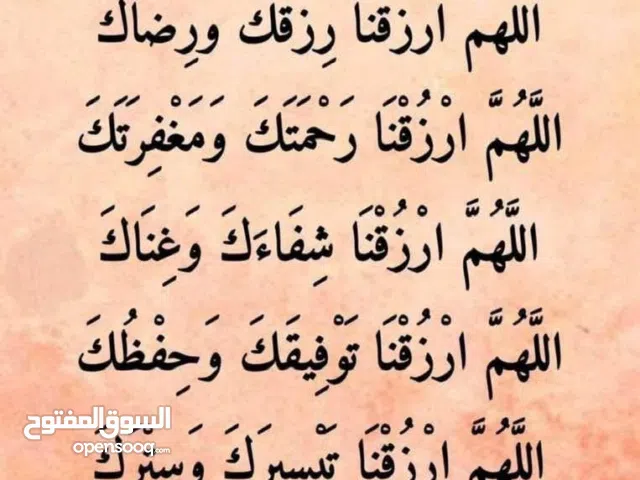 اللهم ارزقنا رِزقك ورِضاك
اللَّهُمَّ ارْزُقْنَا رَحْمَتَكَ وَمَغْفِرَتَكَ
اللَّهُمَّ ارْزُقْنَا شِفَاءَكَ وَغِنَاكَ
اللَّهُمَّ ارْزُقْنَا تَوْفِيقَكَ وَحِفْظُكَ
اللَّهُمَّ ارْزُقْنَا تَيْسِيرَكَ وَسِتْرَكَ
السوق المفتوح
opensooq.com